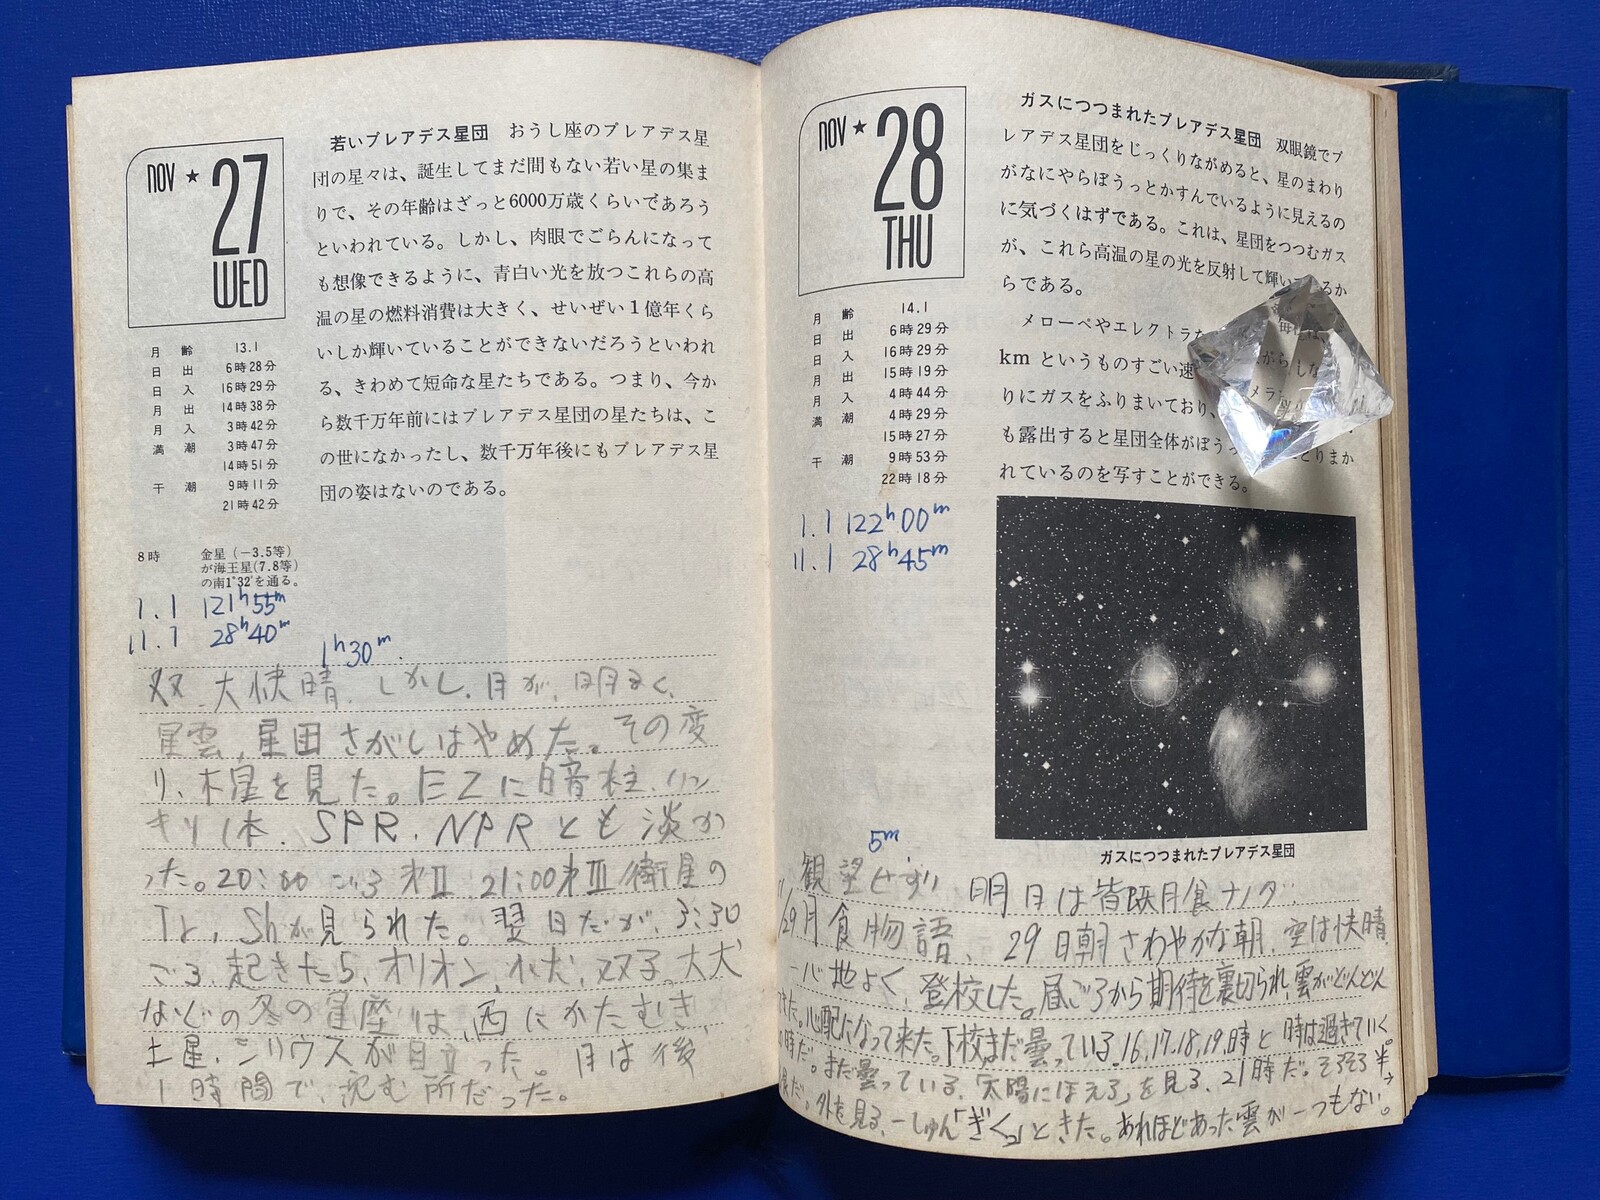 NOV ★ 27
WED
月齢 13.1
日出 6時28分
日入 16時29分
月出 14時38分
月入 3時42分
満潮 3時47分
14時51分
干潮 9時11分
21時42分
8時 金星(−3.5等)
が海王星(7.8等)
の南1°32′を通る。
1.1 121h55m
11.1 28h40m
1h30m.
若いプレアデス星団 おうし座のプレアデス星
団の星々は、誕生してまだ間もない若い星の集ま
りで、その年齢はざっと6000万歳くらいであろう
といわれている。しかし、肉眼でごらんになって
も想像できるように、青白い光を放つこれらの高
温の星の燃料消費は大きく、せいぜい1億年くら
いしか輝いていることができないだろうといわれ
る、きわめて短命な星たちである。つまり、今か
ら数千万年前にはプレアデス星団の星たちは、こ
の世になかったし、数千万年後にもプレアデス星
団の姿はないのである。
双 大快晴. しかし、月が、明るく、
星雲、星団さがしはやめた。その変
り、木星を見た。EZに暗柱、ハッ
キリ1本. SPR. NPRとも淡か
った。20:00ごろ 才II、21:00才III衛星の
Tr, Shが見られた。翌日だが、3:30
ごろ、起きたら、オリオン、小犬、双子、大犬
などの冬の星座は、西にかたむき、
土星、シリウスが目立った。月は後
1時間で、沈む所だった。
NOV ★ 28
THU
月齢 14.1
日出 6時29分
日入 16時29分
月出 15時19分
月入 4時44分
満潮 4時29分
15時27分
干潮 9時53分
22時18分
1.1 122h00m
11.1 28h45m
ガスにつつまれたプレアデス星団 双眼鏡でプ
レアデス星団をじっくりながめると、星のまわり
がなにやらぼうっとかすんでいるように見えるの
に気づくはずである。これは、星団をつつむガス
が、これら高温の星の光を反射して輝い るか
らである。
メローペやエレクトラ 毎
kmというものすごい速 がらしな
りにガスをふりまいており、 メラ
も露出すると星団全体がぼうっ とりまか
れているのを写すことができる。
ガスにつつまれたプレアデス星団
5m
観望せずり 明日は皆既月食ナノダ
/29月食物語、 29日朝さわやかな朝、空は快晴
心地よく、登校した。昼ごろから期待を裏切られ、雲がどんどん
きた。心配になって来た。下校まだ曇っている。16,17,18,19,時と時は過ぎていく。
時だ。まだ曇っている。「太陽にほえろ」を見る、21時だ。そろそろ半
だ。外を見る、一しゅん「ぎくっ」ときた。あれほどあった雲が一つもない。